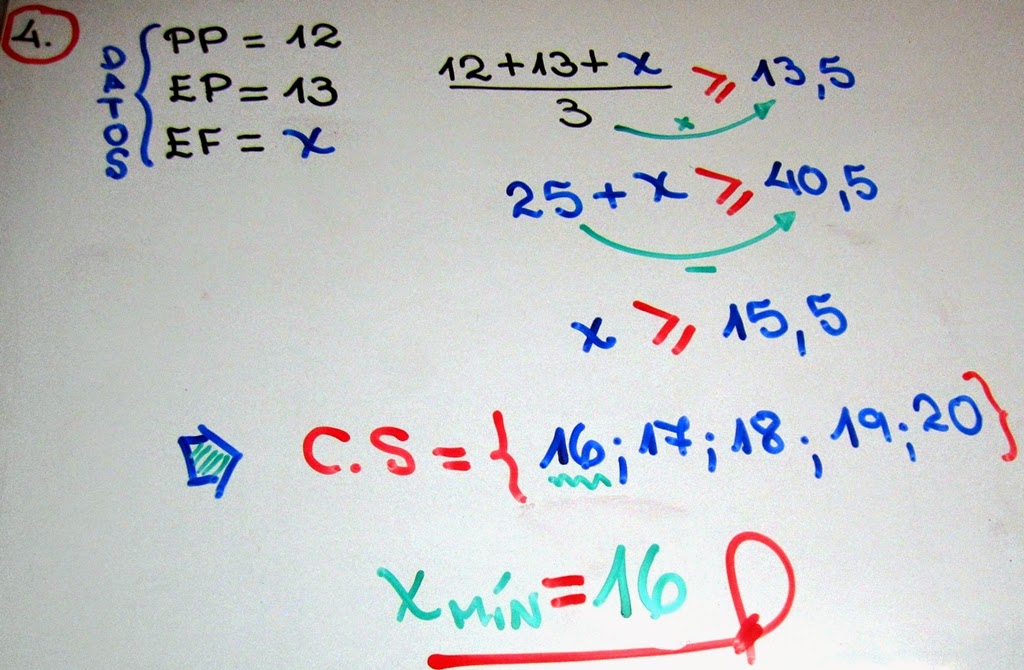 4.
DATOS
PP = 12
EP = 13
EF = x
12 + 13 + x
3
⩾ 13,5
×
25 + x ⩾ 40,5
−
x ⩾ 15,5
C.S = { 16; 17; 18; 19; 20 }
x MÍN = 16